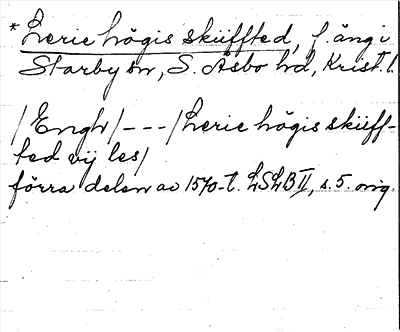 * Lerie högis skiiffted, f. äng i
Starby sn, S. Åsbo hd, Krist. l.
/Engh/---/Lerie högis skiiff-
ted vij les/
förra delen av 1570-t. LSLB II, s. 5. orig.